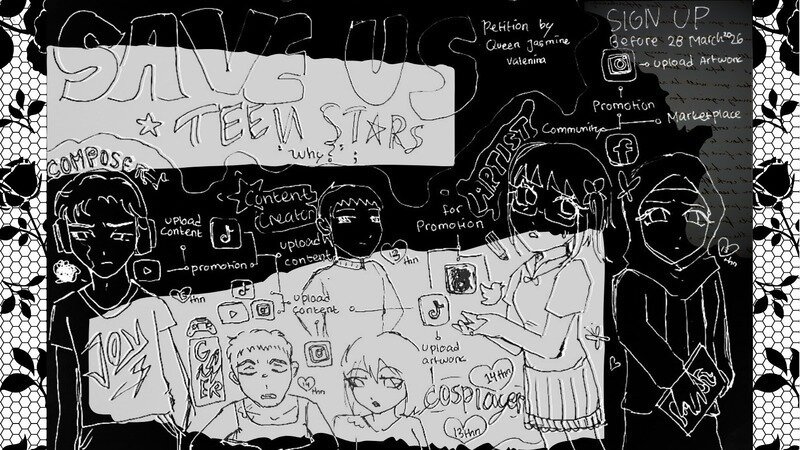 SAVE US
TEEN STARS
"why?" ;
Petition by
Queen Jasmine
Valenina
SIGN UP
Before 28 March 2026
upload Artwork
Promotion
Marketplace
Community
COMPOSER
Content
Creator
ARTIST
for
Promotion
upload
content
promotion
upload
content
13
thn
thn
upload
content
JOY
GAMER
thn
upload
artwork
14 thn
cosplayer
13 thn
thn